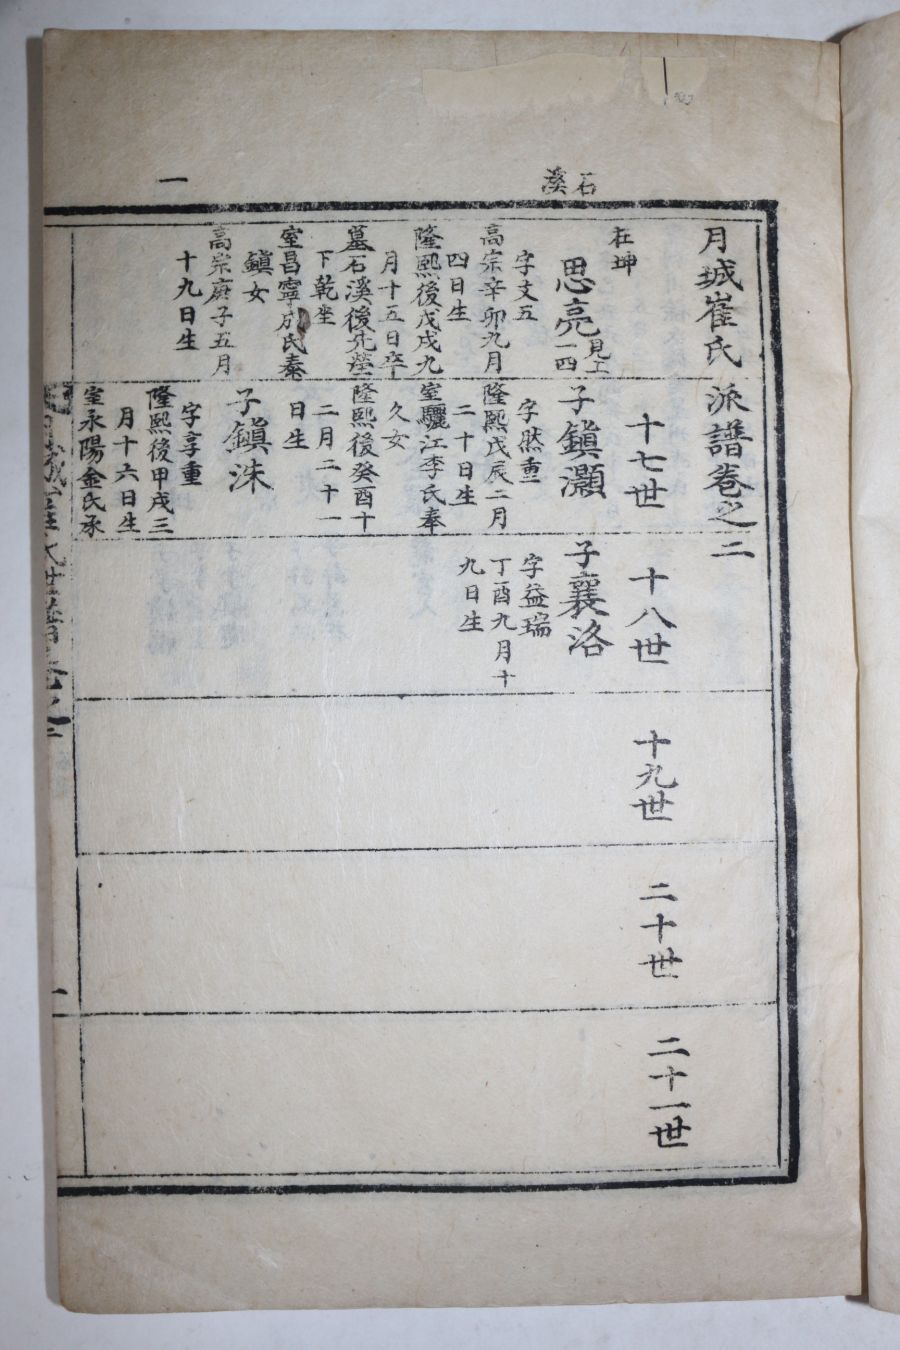 石溪
一
月城崔氏派譜卷之二
在坤
思亮
見上一四
字文五
高宗辛卯九月
四日生
隆熙後戊戌九
月十五日卒
墓石溪後先塋
下乾坐
室昌寧成氏秦
鎭女
高宗庚子五月
十九日生
十七世
子鎭灝
字然重
隆熙戊辰二月
二十日生
室驪江李氏奉
久女
隆熙後癸酉十
二月二十一
日生
子鎭洙
字享重
隆熙後甲戌三
月十六日生
室永陽金氏承
十八世
子襄洛
字益瑞
丁酉九月十
九日生
十九世
二十世
二十一世